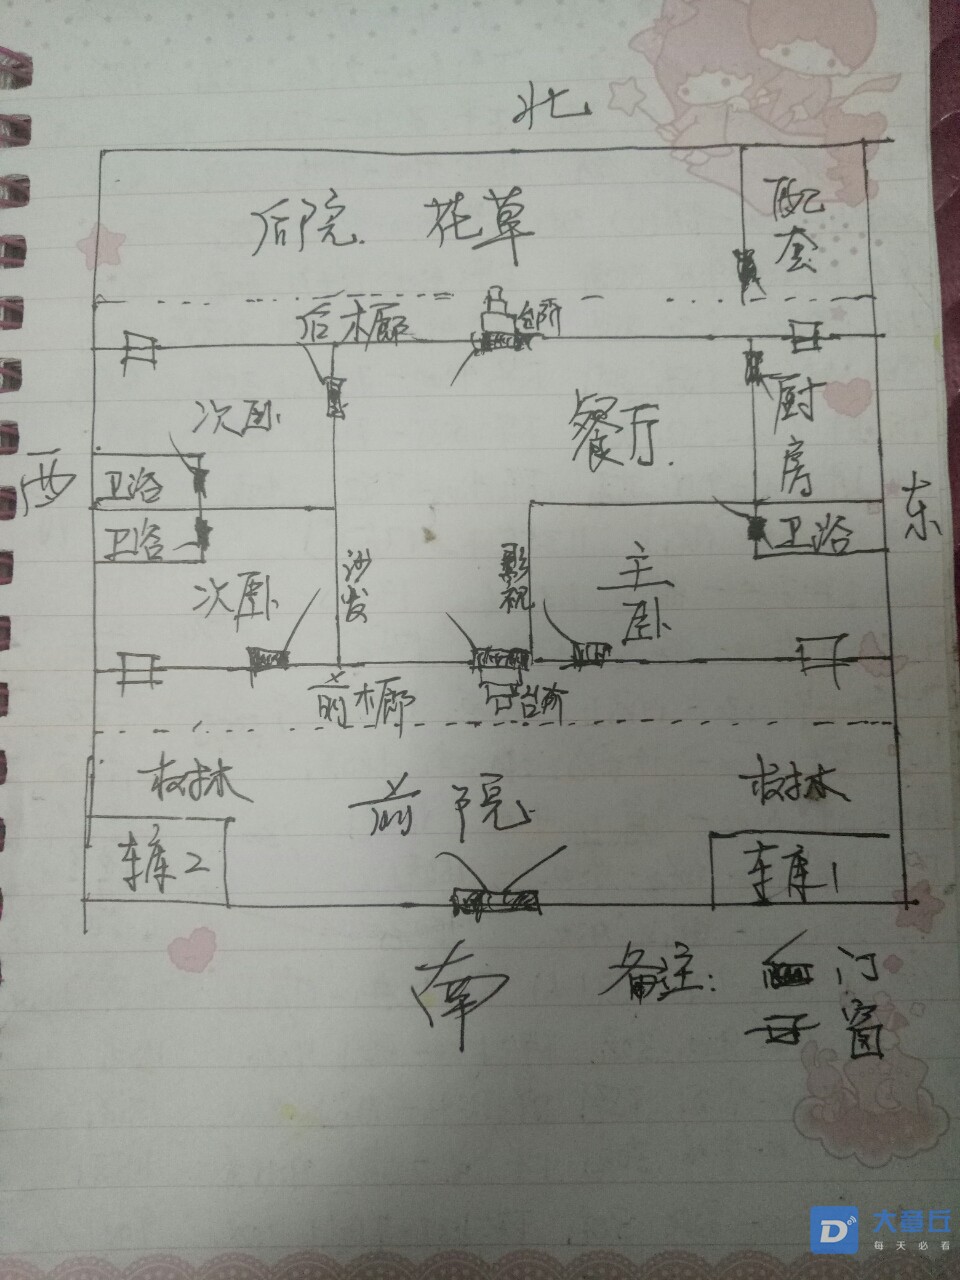 北
后院 花草
配套
后木廊
台阶
次卧
餐厅
厨房
西
卫浴
东
卫浴
卫浴
沙发
影视
主卧
次卧
前木廊
台阶
树林
前院
树林
车库2
车库1
南
备注: 门
窗
D
大章丘
每天必看